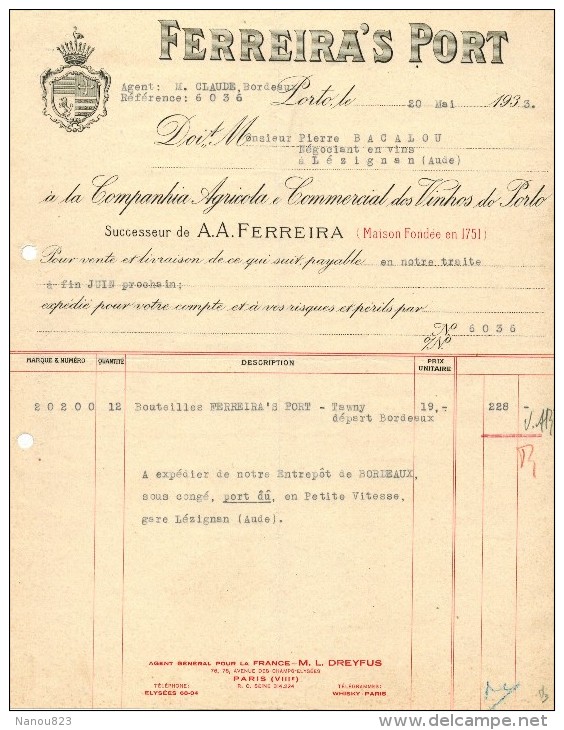 FERREIRA'S PORT
Agent: M. CLAUDE, Bordeaux
Référence: 6036
Porto, le 20 Mai 1933.
Doit, Monsieur Pierre BACALOU
Négociant en vins
à Lézignan (Aude)
à la Companhia Agricola e Commercial dos Vinhos do Porto
Successeur de A.A. FERREIRA (Maison Fondée en 1751)
Pour vente et livraison de ce qui suit, payable en notre traite
à fin JUIN prochain;
expédié pour votre compte et à vos risques et périls par
Nº 6036
MARQUE & NUMÉRO QUANTITÉ DESCRIPTION PRIX UNITAIRE
20200 12 Bouteilles FERREIRA'S PORT - Tawny 19,- 228
départ Bordeaux
A expédier de notre Entrepôt de BORDEAUX,
sous congé, port dû, en Petite Vitesse,
gare Lézignan (Aude).
AGENT GÉNÉRAL POUR LA FRANCE — M. L. DREYFUS
76, 78, AVENUE DES CHAMPS-ELYSÉES
PARIS (VIIIe)
TÉLÉPHONE: R. C. SEINE 314.224 TÉLÉGRAMMES:
ELYSÉES 68-04 WHISKY-PARIS
Nanou823
www.delcampe.net